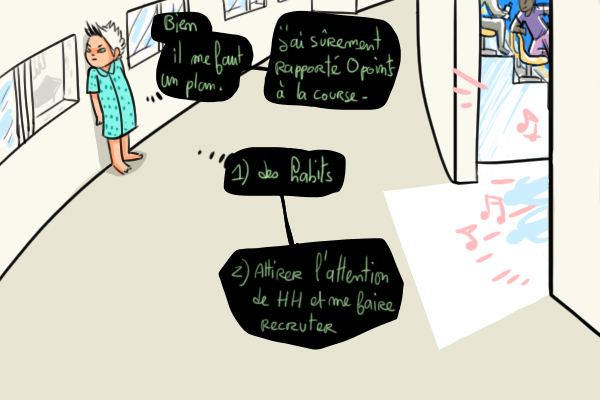 Bien
il me faut
un plan.
j'ai sûrement
rapporté 0 points
à la course.
1) des habits
2) Attirer l'attention
de HH et me faire
recruter